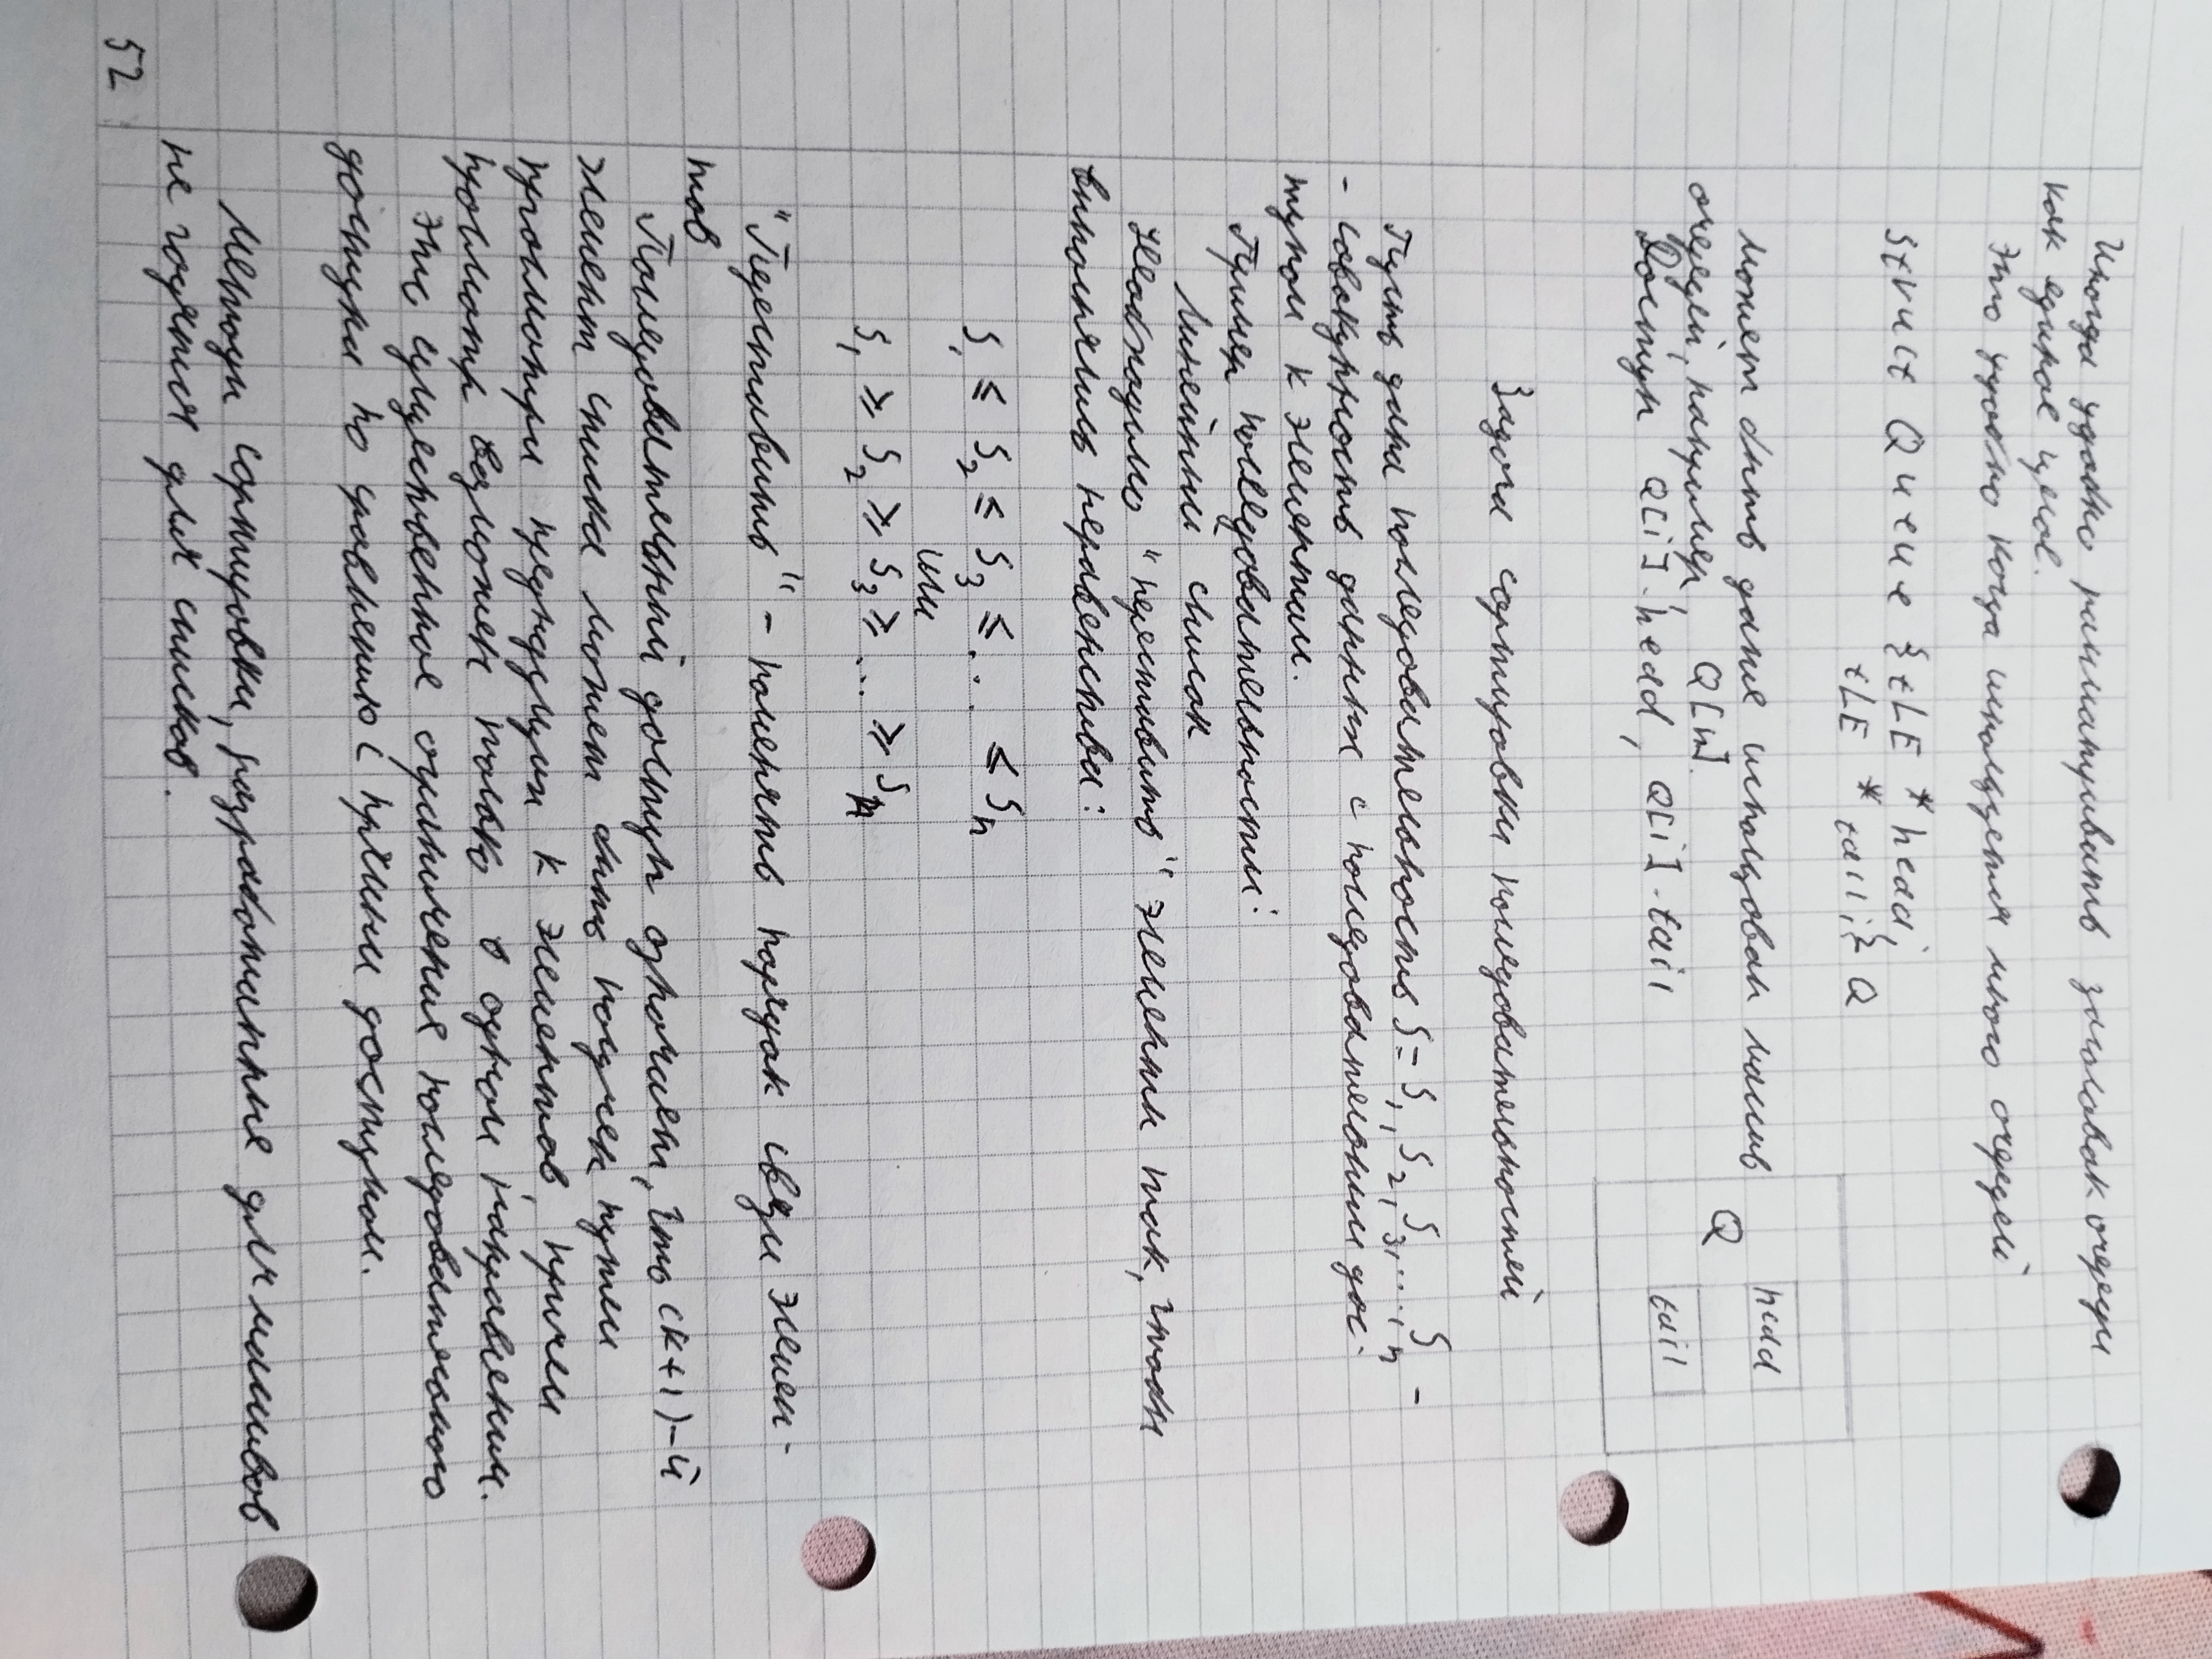 Иногда удобно рассматривать заголовок очереди
как единое целое.
Это удобно когда используется много очередей
struct Queue { tLE * head;
tLE * tail; } Q
может быть даже использован массив
очередей, например, Q[n].
Доступ Q[i].head, Q[i].tail
Q
head
tail
Задача сортировки последовательностей
Пусть дана последовательность S = S₁, S₂, S₃, ..., Sₙ -
- совокупность данных с последовательным дос-
тупом к элементам.
Пример последовательности:
Линейный список
Необходимо "переставить" элементы так, чтобы
выполнялись неравенства:
S₁ ≤ S₂ ≤ S₃ ≤ ... ≤ Sₙ
или
S₁ ≥ S₂ ≥ S₃ ≥ ... ≥ Sₙ
"Переставить" - поменять порядок связи элемен-
тов
Последовательный доступ означает, что (k+1)-й
элемент списка может быть получен путем
просмотра предыдущих k элементов, причем
просмотр возможен только в одном направлении.
Это существенное ограничение последовательного
доступа по сравнению с прямым доступом.
Методы сортировки, разработанные для массивов
не годятся для списков.
52